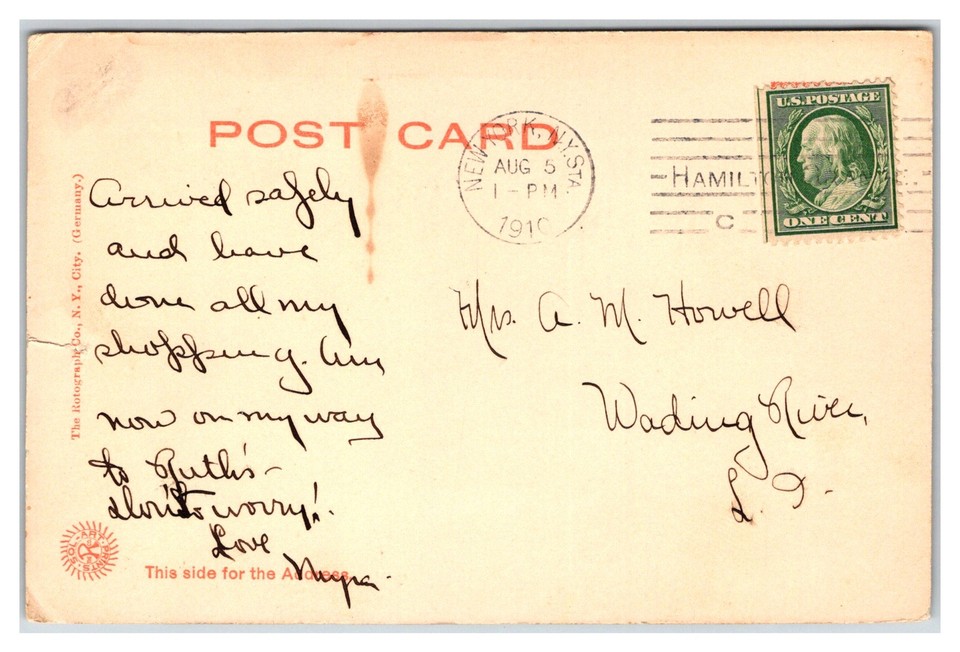 POST CARD
NEW YORK, N.Y. STA.
AUG 5
1 - PM
1910
HAMILTON
C
U.S. POSTAGE
ONE CENT
Arrived safely
and have
done all my
shopping. Am
now on my way
to Ruth's -
don't worry!
Love
Myra.
Mrs. A. M. Howell
Wading River,
L. I.
The Rotograph Co., N. Y., City. (Germany.)
This side for the Address